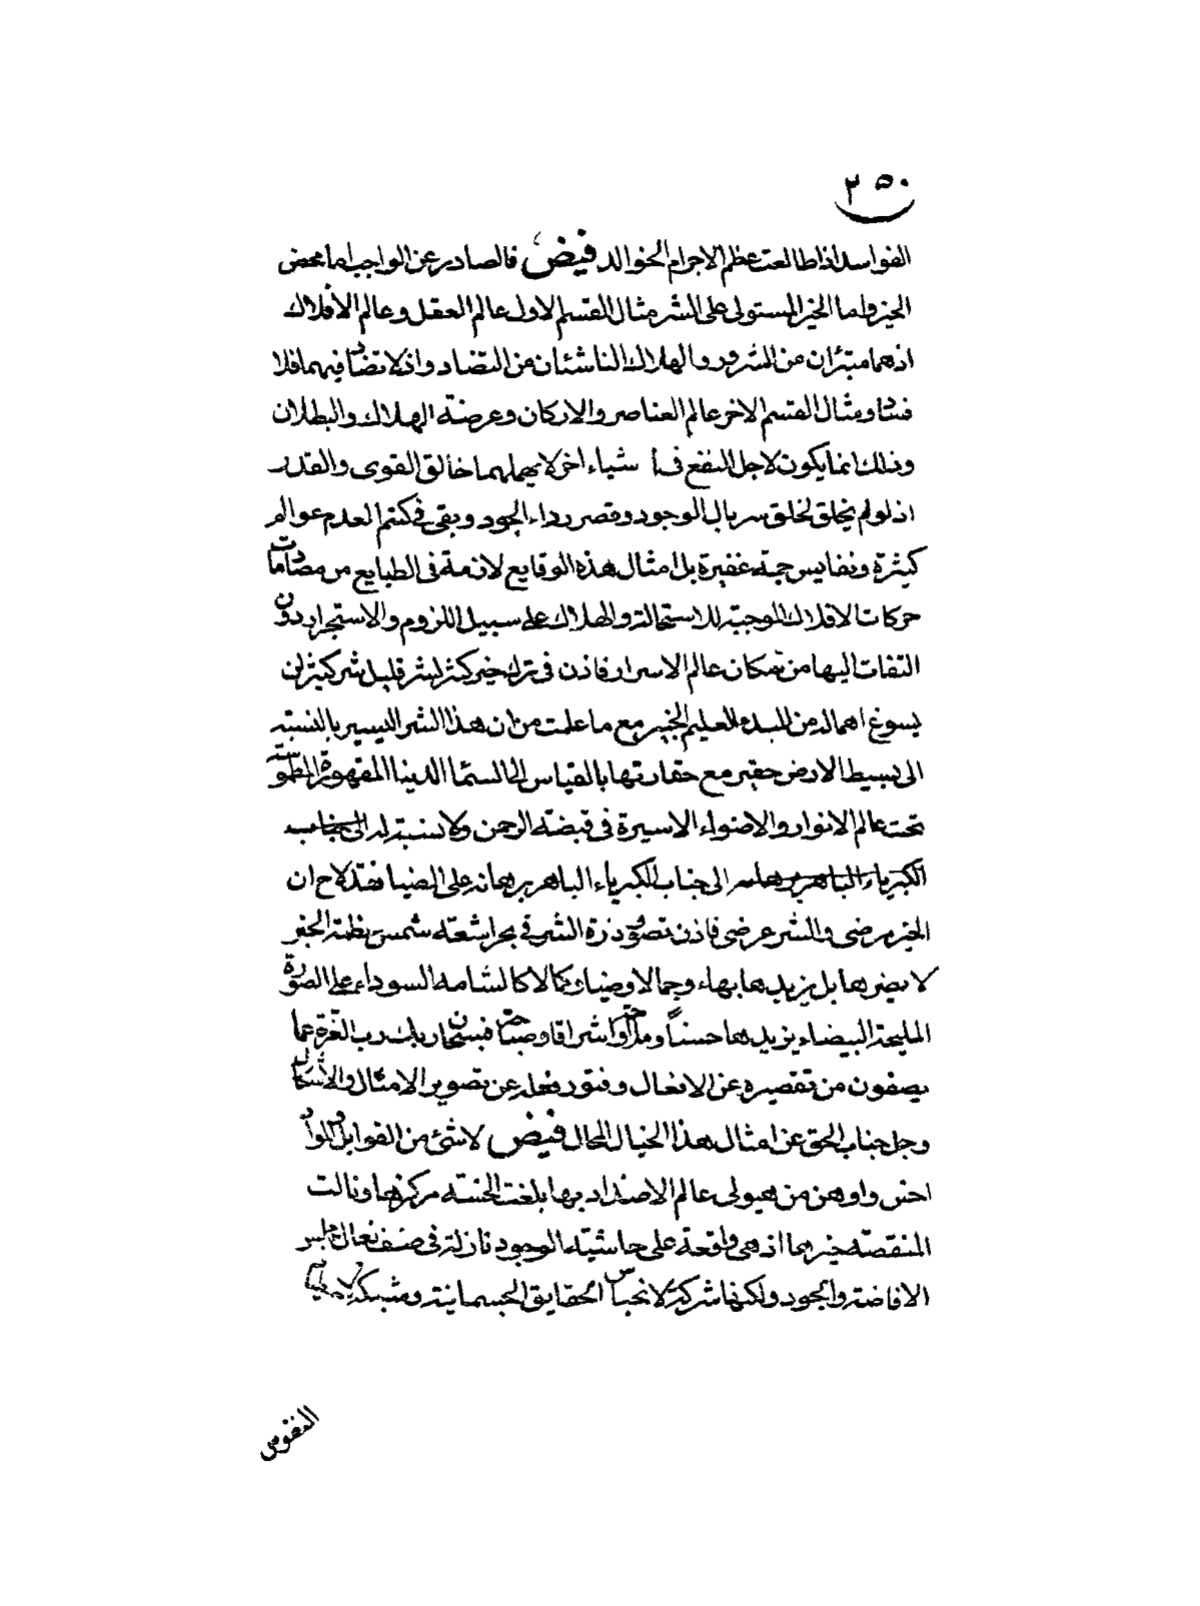 ٢٥٠
الفواسد اذا طالعت عظم الاجرام الخوالد فيض فالصادر عن الواجب اما محض
الخير واما الخير المستولى على الشر مثال القسم الاول عالم العقل وعالم الأفلاك
اذ هما مبتران من الشرور والهلاك الناشئان من التضاد واذ لا تضاد فيهما فلا
فساد ومثال القسم الاخر عالم العناصر والاركان وعرضة الهلاك والبطلان
وذلك انما يكون لاجل النفع فى أ شياء اخر لا يهملهما خالق القوى والقدر
اذ لو لم يخلق لخلق سربال الوجود وقصر رداء الجود وبقى فى كتم العدم عوالم
كثيرة ونفايس جمة غفيرة بل امثال هذه الوقايع لازمة فى الطبايع من مصادمات
حركات الافلاك الموجبة للاستحالة والهلاك على سبيل اللزوم والاستجرار دون
التفات اليها من سكان عالم الاسرار فاذن فى ترك خير كثير لشر قليل شر كثير لن
يسوغ اهماله من المبدء العليم الخبير مع ما علمت من ان هذا الشر اليسير بالنسبته
الى بسيط الارض حقير مع حقارتها بالقياس الى السمآ الدنيا المقهورة المطموسة
تحت عالم الانوار والاضواء الاسيرة فى قبضة الرحمن ولا نسبة له الى جناب
الكبرياء الباهر برهانه الى جناب الكبرياء الباهر برهانه على الضيا فقد لاح ان
الخير مرضى والشر عرضى فاذن تصور ذرة الشر فى بحر اشعة شمس الخير
لا يضرها بل يزيدها بهاء وجمالا وضياء وكمالا كالشامه السوداء على الصورة
المليحة البيضاء يزيدها حسناً وملاحة واشراقا وصباحة فسبحان ربك رب العزة عما
يصفون من تقصيره عن الافعال وفتور فعله عن تصوير الامثال والأشكال
وجل جناب الحق عن امثال هذا الخيال المحال فيض لا شئ من القوابل والمواد
اخس واوهن من هيولى عالم الاضداد بها بلغت الخسة مركزها ونالت
المنقصة خيرها اذ هى واقعة على حاشية الوجود نازلة فى صف نعال مجلس
الافاضة والجود ولكنها شركة لانحباس الحقايق الجسمانية ومشبكة
النفوس